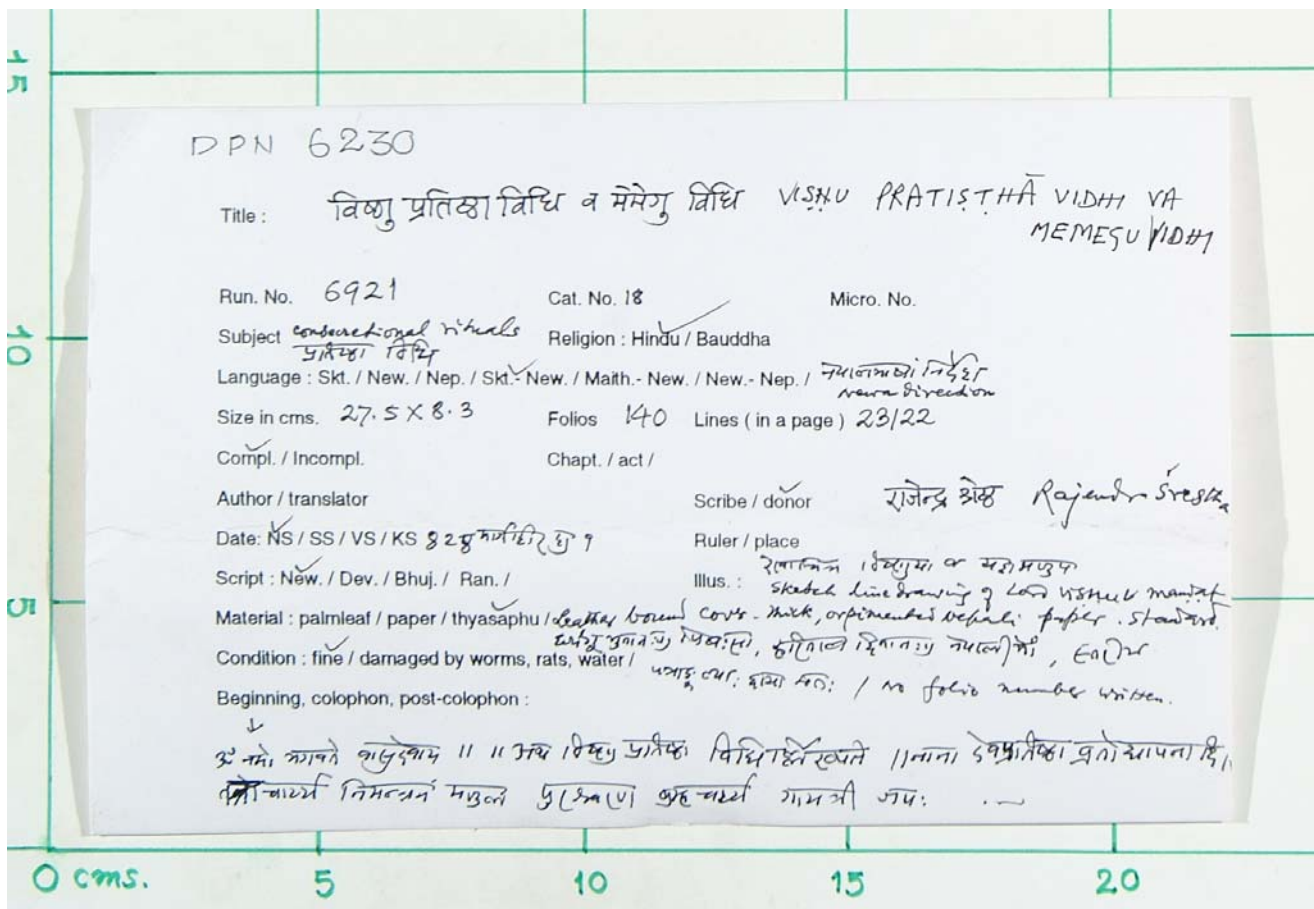 15
DPN 6230
Title : विष्णु प्रतिष्ठा विधि व मेमेगु विधि VISNU PRATISTHĀ VIDHI VA
MEMEGU VIDHI
Run. No. 6921 Cat. No. 18 Micro. No.
10
Subject consecrational rituals Religion : Hindu / Bauddha
प्रतिष्ठा विधि
Language : Skt. / New. / Nep. / Skt.- New. / Maith.- New. / New.- Nep. / नेपालभाषां निर्देश
newa direction
Size in cms. 27.5 X 8.3 Folios 140 Lines ( in a page ) 23/22
Compl. / Incompl. Chapt. / act /
Author / translator Scribe / donor राजेन्द्र श्रेष्ठ Rajendra Śrestha
Date: NS / SS / VS / KS Ruler / place
Script : New. / Dev. / Bhuj. / Ran. / Illus. :
sketch line drawing of Lord Visnu mandap
5
Material : palmleaf / paper / thyasaphu / Leather bound cover - thick, orpimented nepali paper. Standard.
Condition : fine / damaged by worms, rats, water /
/ no folio number written.
Beginning, colophon, post-colophon :
ॐ नमो भगवते वासुदेवाय ॥ ॥ अथ विष्णु प्रतिष्ठा विधि र्लिख्यते ॥ नाना देवप्रतिष्ठा
निमन्त्रनं गायत्री जपः
0 cms. 5 10 15 20